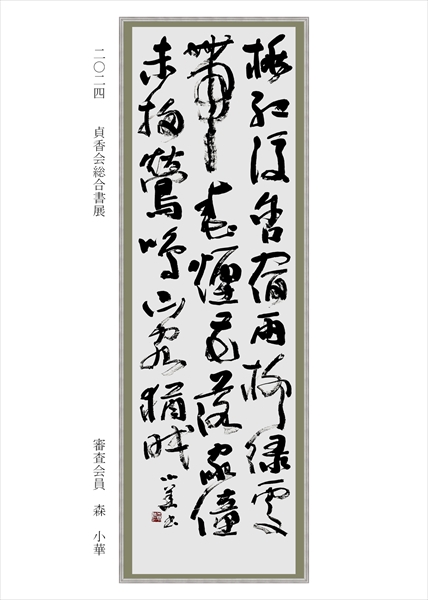 桃紅復含宿雨柳緑更
帶春煙花落家僮
未掃鶯鳴山客猶眠
小華書
二〇二四 貞香会総合書展
審査会員 森 小華